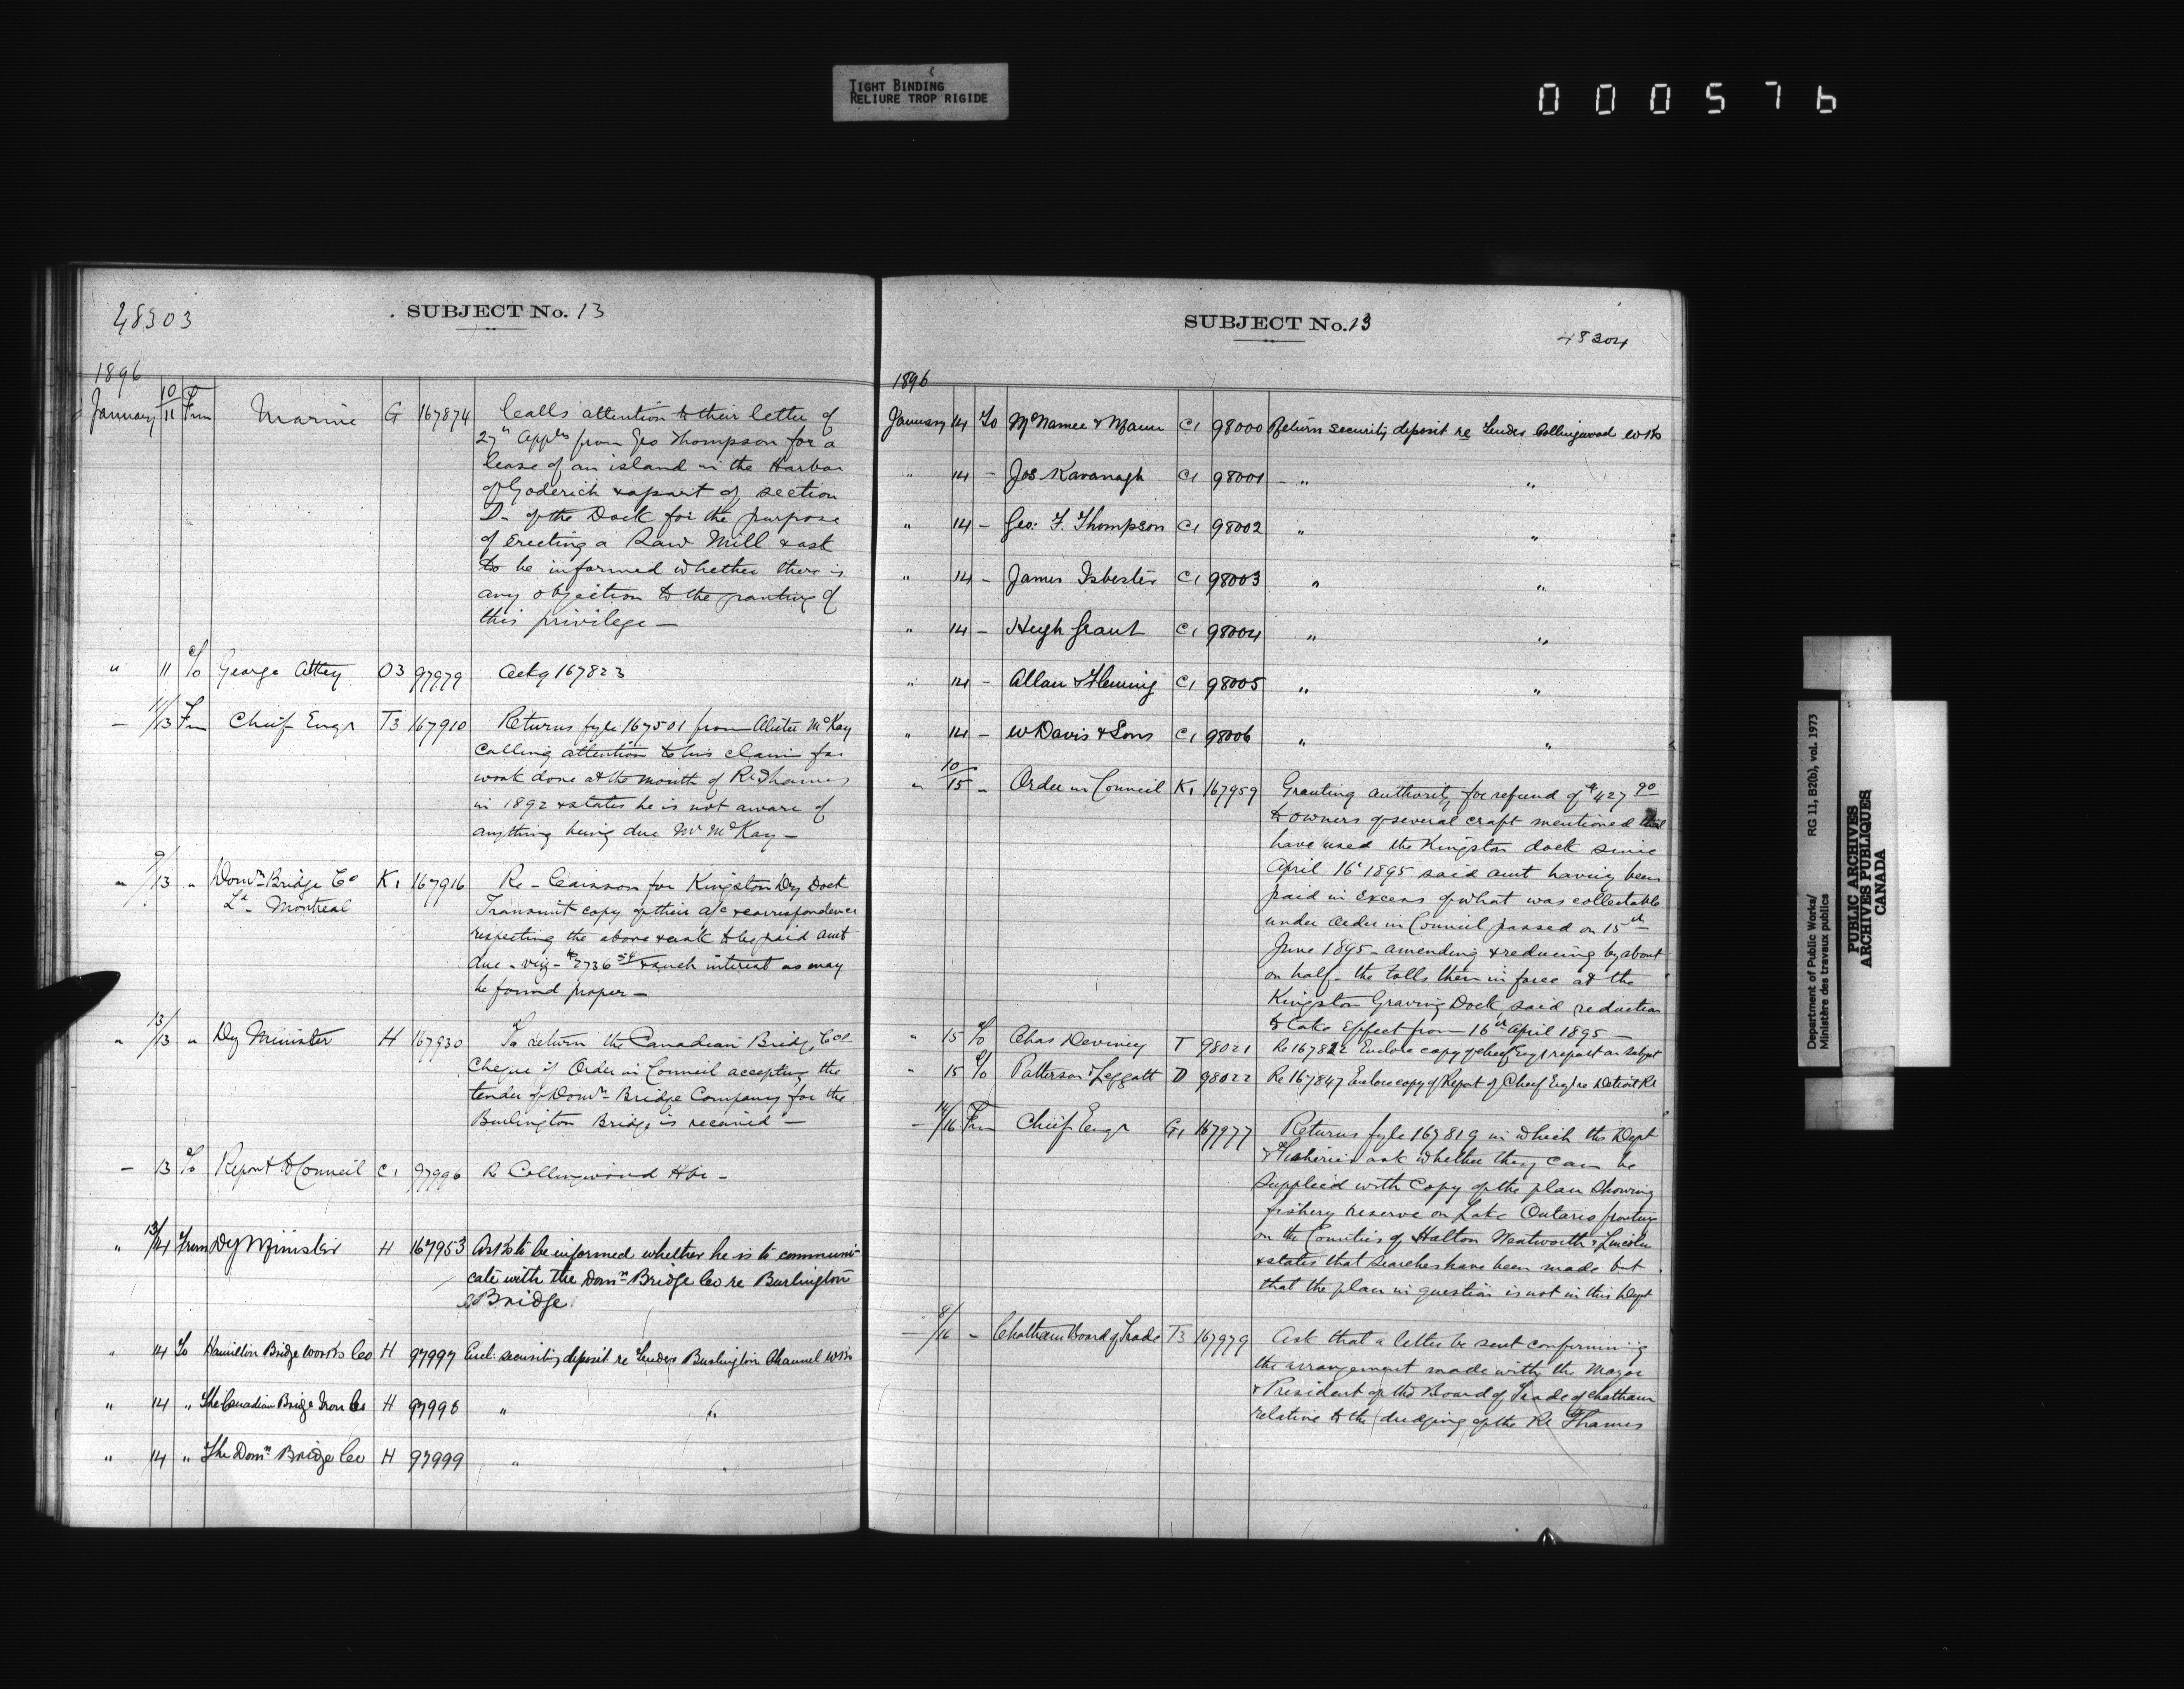 TIGHT BINDING
RELIURE TROP RIGIDE
000576
48303
SUBJECT No. 13
1896
January 10/11 Fm Marine G 167874 Calls attention to their letter of
27th Appln from Geo Thompson for a
lease of an island in the Harbor
of Goderich & a part of section
D - of the Dock for the purpose
of erecting a Saw Mill & ask
to be informed whether there is
any objection to the granting of
this privilege —
" 11 To George Attey O3 97979 Ackg 167823
— 11/13 Fm Chief Engr T3 167910 Returns fyle 167501 from McKay
calling attention to his claim for
work done at the mouth of R. Thames
in 1892 & states he is not aware of
anything being due Mr McKay —
" 9/13 " Domn Bridge Co K1 167916 Re - Caisson for Kingston Dry Dock
Ld - Montreal
Transmit copy of their a/c & correspondence
respecting the above & ask to be paid amt
due - viz - $7736 54 & such interest as may
be found proper —
" 13/13 " Dy Minister H 167930 To return the Canadian Bridge Cos
cheque if Order in Council accepting the
tender of Domn Bridge Company for the
Burlington Bridge is received —
— 13 To Report to Council C1 97996 R Collingwood Hbr -
" 13/14 From Dy Minister H 167953 Asks to be informed whether he is to communi-
cate with the Domn Bridge Co re Burlington
Bridge
" 14 To Hamilton Bridge Works Co H 97997 Encl. security deposit re Tenders Burlington Channel wks
" 14 " The Canadian Brige Iron Co H 97998 " "
" 14 " The Domn Bridge Co H 97999 " "
SUBJECT No. 13
48304
1896
January 14 To McNamee & Mann C1 98000 Return security deposit re Tender Collingwood wks
" 14 - Jos Kavanagh C1 98001 - " "
" 14 - Geo: F. Thompson C1 98002 " "
" 14 - James Isbester C1 98003 " "
" 14 - Hugh Grant C1 98004 " "
" 14 - Allan & Fleming C1 98005 " "
" 14 - W Davis & Sons C1 98006 " "
" 10/15 - Order in Council K1 167959 Granting authority for refund of $427 90
to owners of several craft mentioned that
have used the Kingston dock since
April 16th 1895 said amt having been
paid in excess of what was collectable
under Order in Council passed on 15th
June 1895 - amending & reducing by about
on half - the tolls then in force at the
Kingston Graving Dock, said reduction
to take effect from 16th April 1895 —
" 15 To Chas Deviney T 98021 Re 167822 Enclose copy of chief Engr report on subject
" 15 To Patterson & Leggatt D 98022 Re 167847 Enclose copy of Report of Chief Engr re Detroit Rr
— 14/16 Fm Chief Engr G1 167977 Returns fyle 167819 in which the Dept
& Fisheries ask whether they can be
supplied with copy of the plan showing
fishery reserve on Lake Ontario fronting
on the Counties of Halton Wentworth & Lincoln
& states that searches have been made but
that the plan in question is not in this Dept
— 8/16 - Chatham Board of Trade T3 167979 Ask that a letter be sent confirming
the arrangement made with the Mayor
& President of the Board of Trade of Chatham
relative to the dredging of the Rr Thames
Department of Public Works/ RG 11, B2(b), vol. 1973
Ministère des travaux publics
PUBLIC ARCHIVES
ARCHIVES PUBLIQUES
CANADA